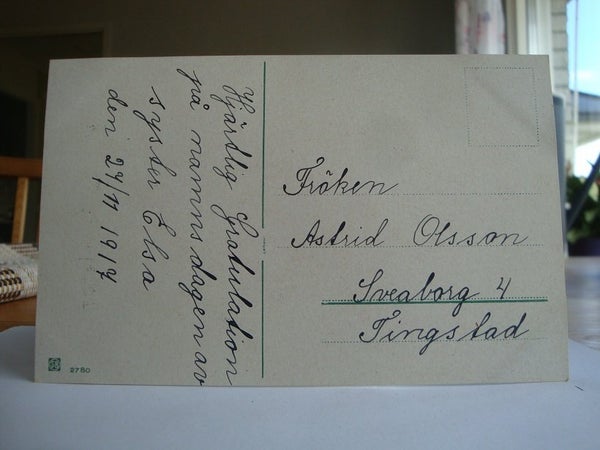 Hjärtlig Gratulation
på namnsdagen av
syster Elsa
den 27/11 1917
Fröken
Astrid Olsson
Sveaborg 4
Tingstad
2750